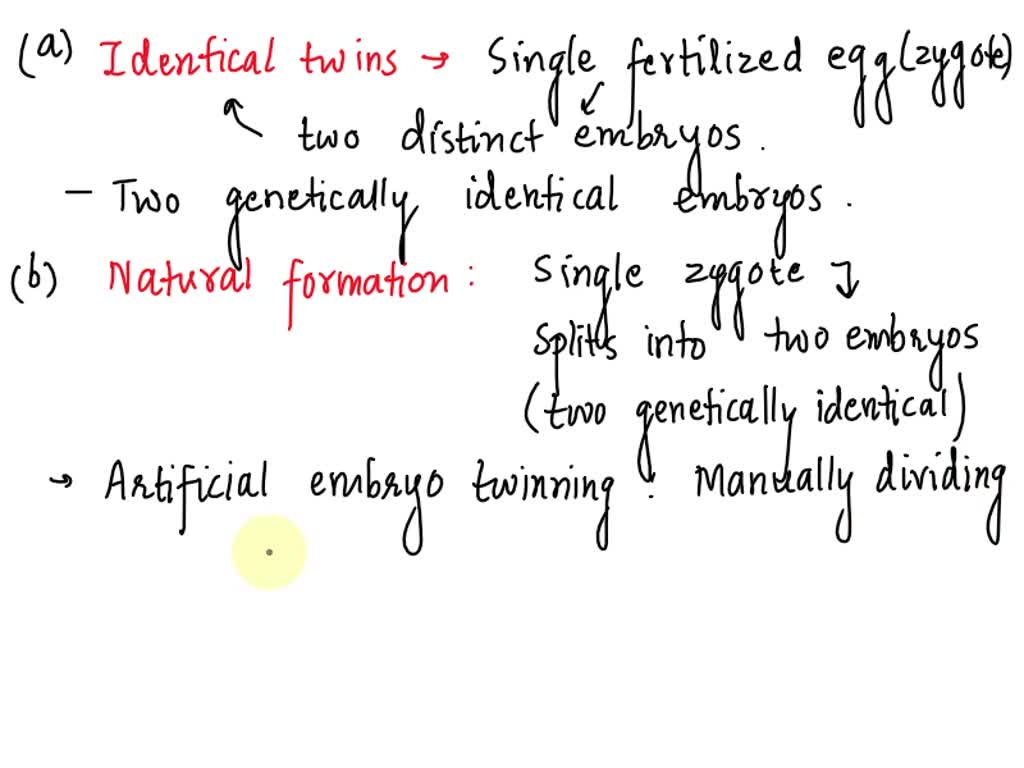 (a) Identical twins → Single fertilized egg (zygote)
two distinct embryos.
- Two genetically identical embryos.
(b) Natural formation: Single zygote
splits into two embryos
(two genetically identical)
→ Artificial embryo twinning: Manually dividing